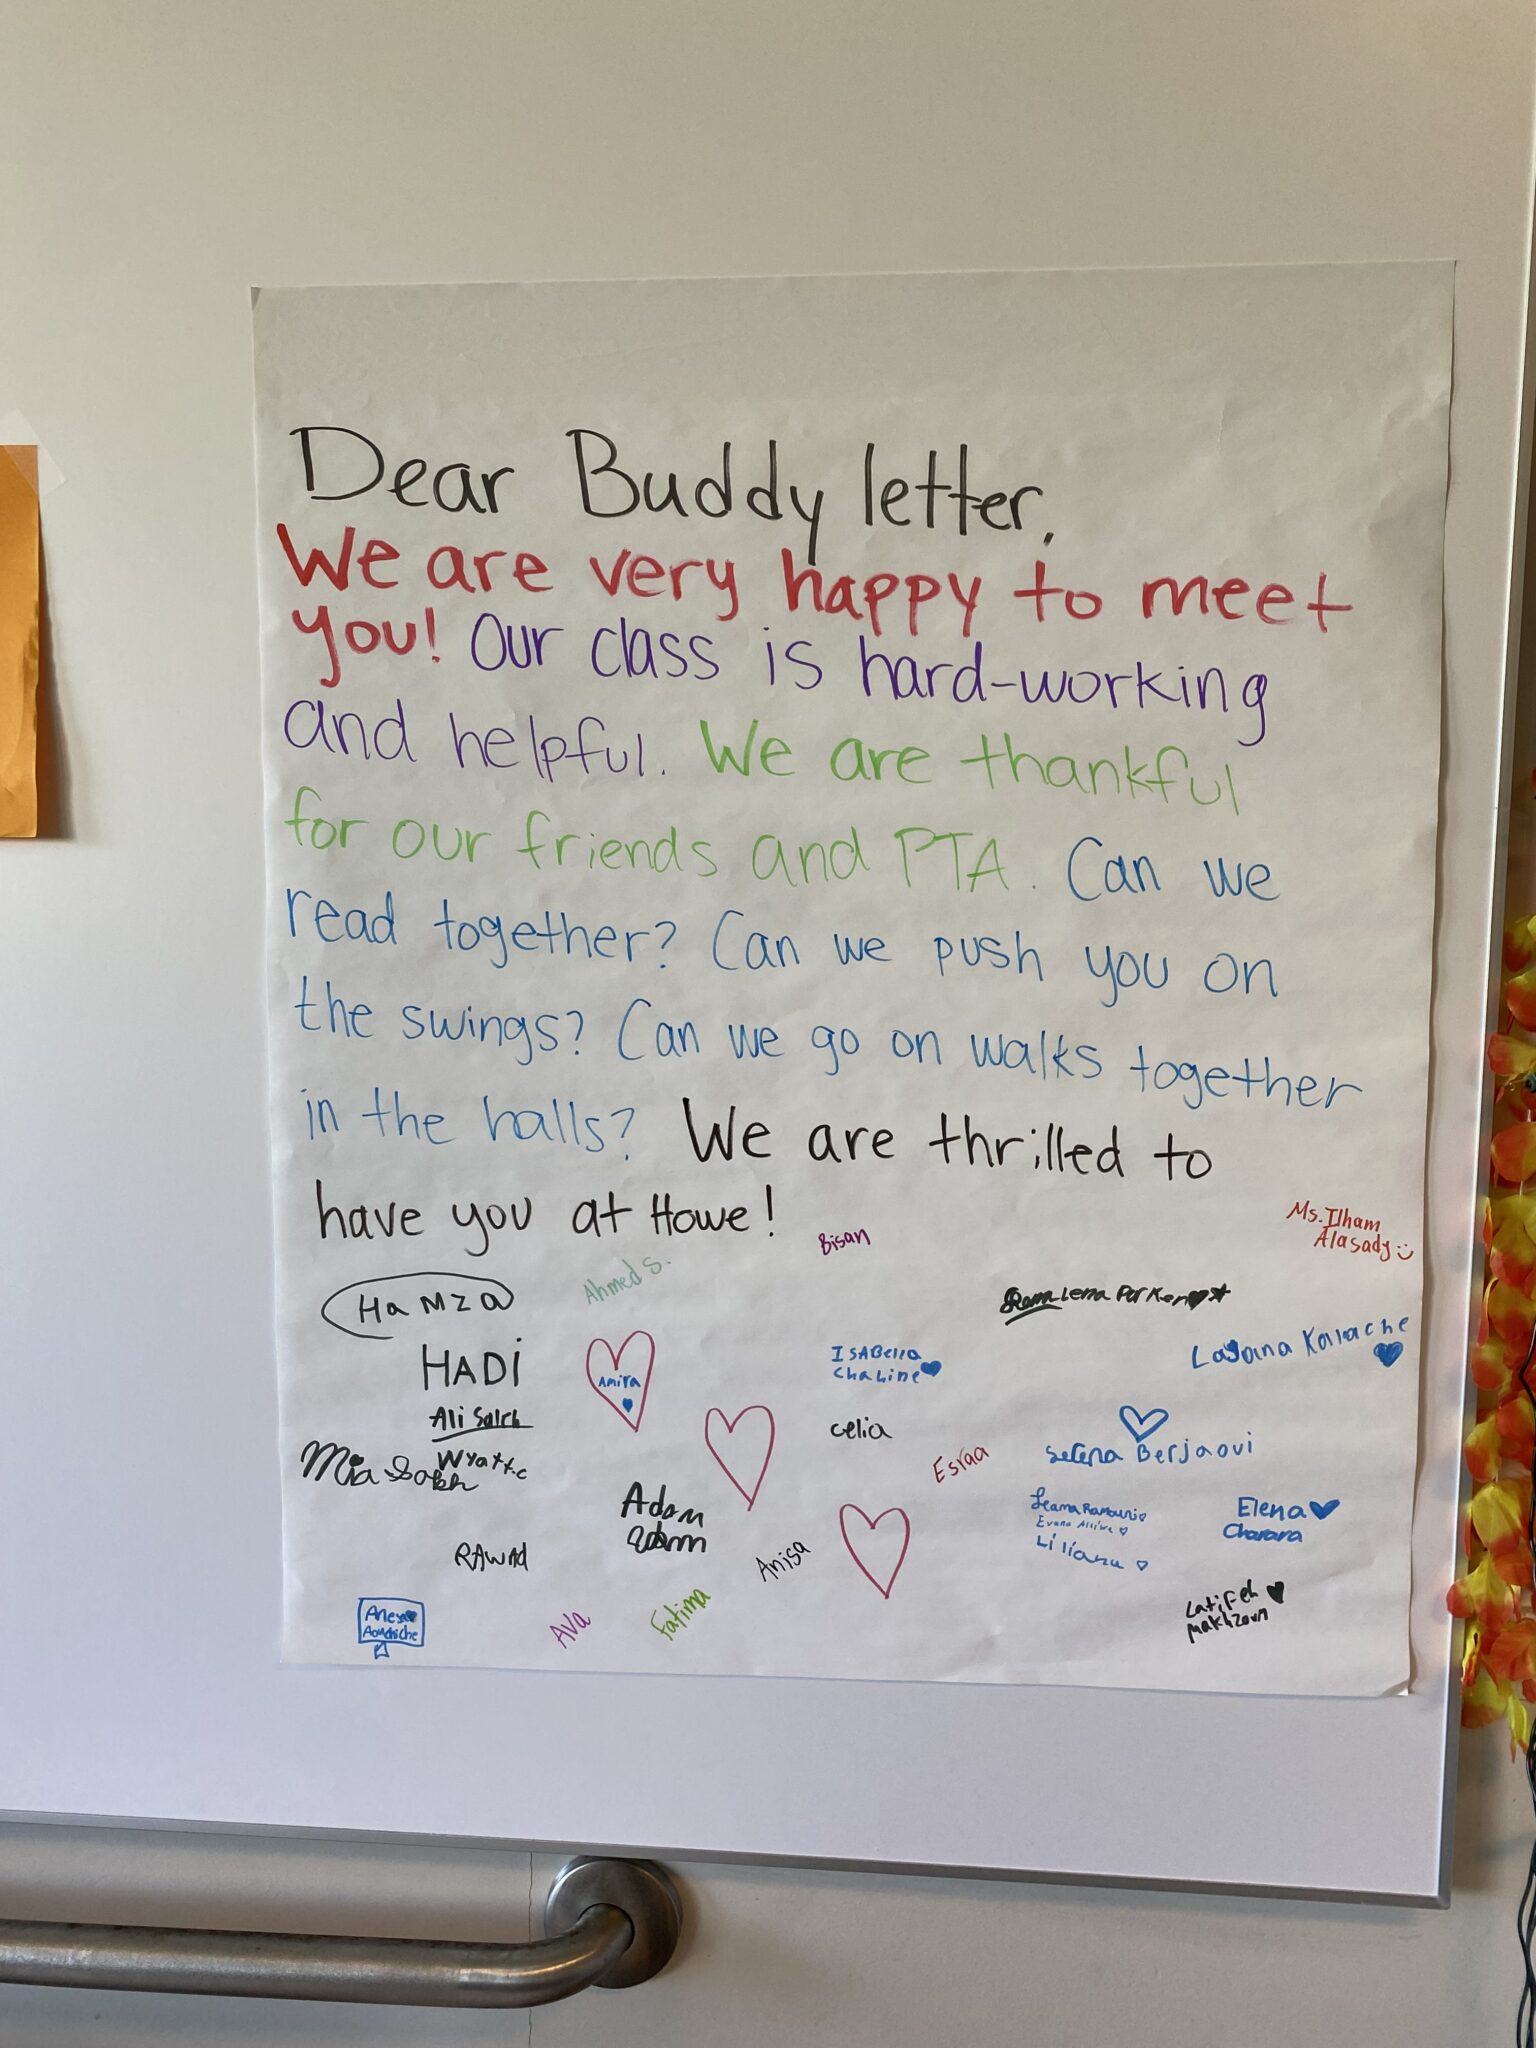 Dear Buddy letter,
We are very happy to meet
you! Our class is hard-working
and helpful. We are thankful
for our friends and PTA. Can we
read together? Can we push you on
the swings? Can we go on walks together
in the halls? We are thrilled to
have you at Howe!
Bisan
Ms. Ilham
Alasady
Ahmed S.
HaMza
Lena Parker
HADi
Amira
ISABella
Chaline
Ali Saleh
celia
Selena Berjaoui
Mia
Wyatt.c
Esraa
Adam
Adam
Elena
Charara
Liliana
RAWAD
Anisa
Ava
Fatima
Latifeh
Makhzoum